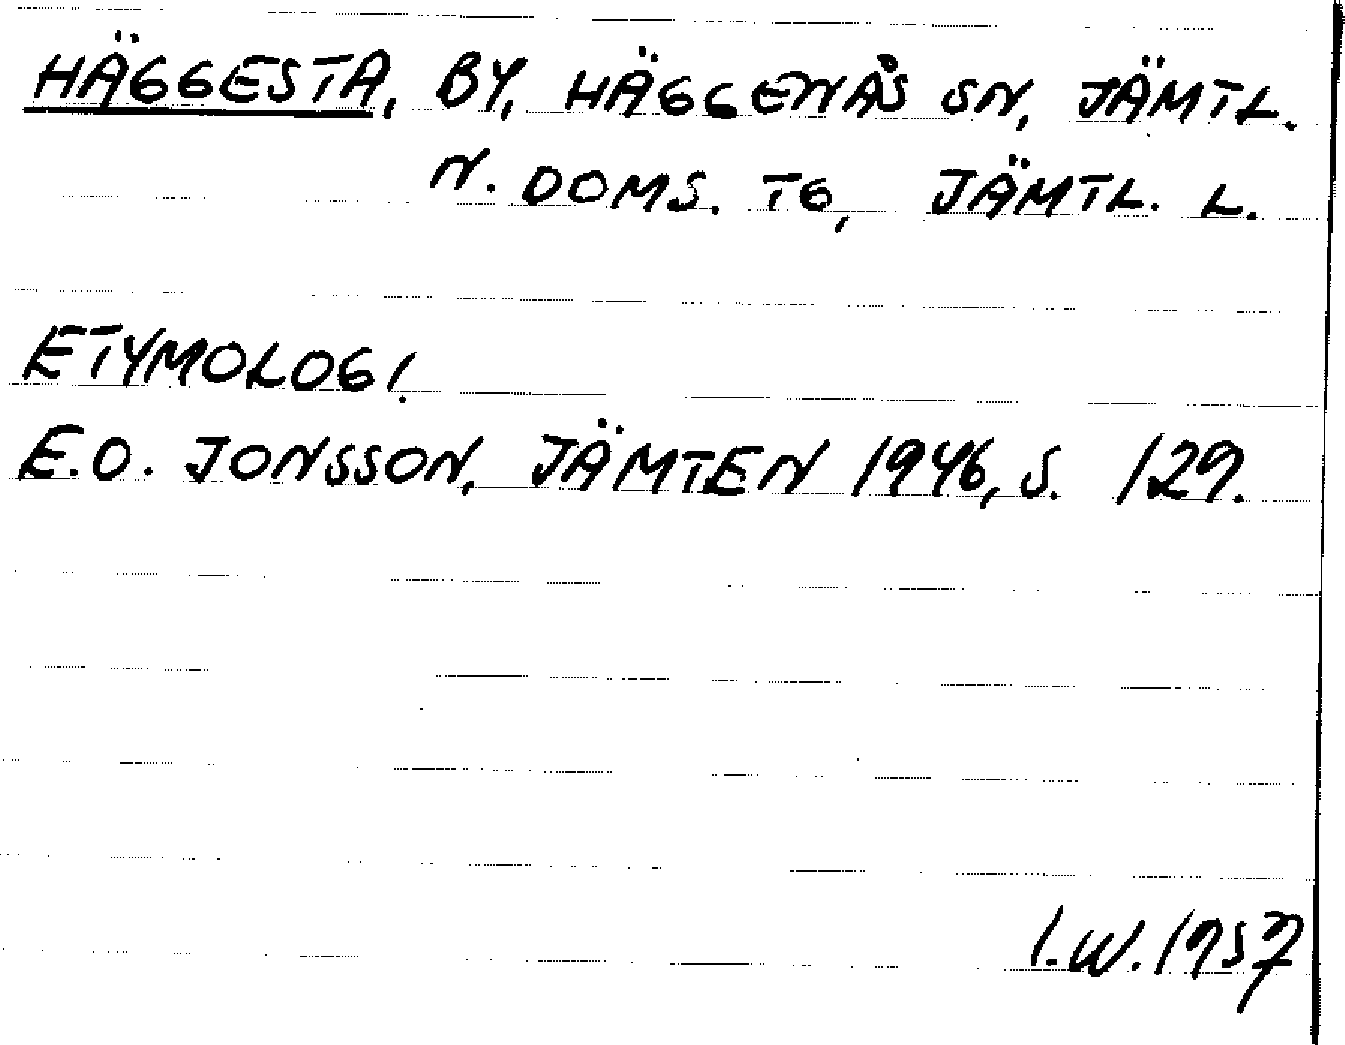 HÄGGESTA, BY, HÄGGENÅS SN, JÄMTL.
N. DOMS. TG, JÄMTL. L.
ETYMOLOGI.
E.O. JONSSON, JÄMTEN 1946, S. 129.
I.W. 1957